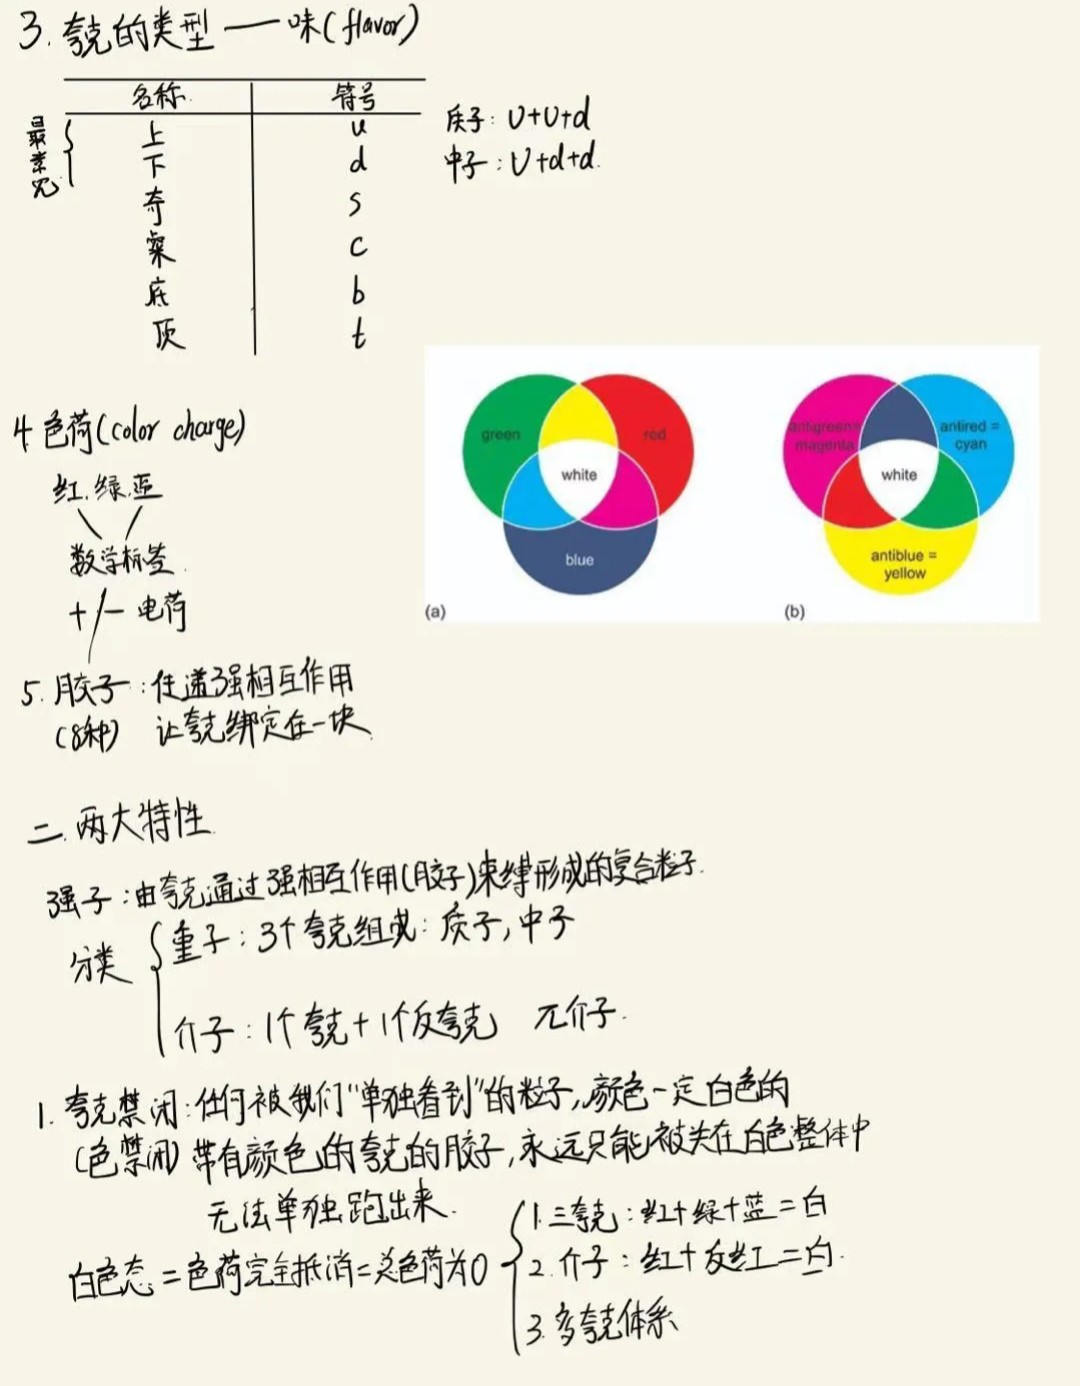 3. 夸克的类型 — 味(flavor)
名称 符号
最常见
上 u
下 d
奇 s
粲 c
底 b
顶 t
质子: U+U+d
中子: U+d+d.
4 色荷(color charge)
红.绿.蓝
数学标签.
+/- 电荷
green
red
white
blue
(a)
antigreen=
magenta
antired =
cyan
white
antiblue =
yellow
(b)
5. 胶子:传递强相互作用
(8种) 让夸克绑定在一块
二.两大特性
强子:由夸克通过强相互作用(胶子)束缚形成的复合粒子.
分类
重子: 3个夸克组成: 质子,中子
介子: 1个夸克+1个反夸克 π介子.
1. 夸克禁闭:任何被我们"单独看到"的粒子,颜色一定白色的
(色禁闭) 带有颜色的夸克的胶子,永远只能被关在白色整体中
无法单独跑出来.
白色态=色荷完全抵消=总色荷为0
1.三夸克: 红+绿+蓝=白
2.介子: 红+反红=白.
3.多夸克体系